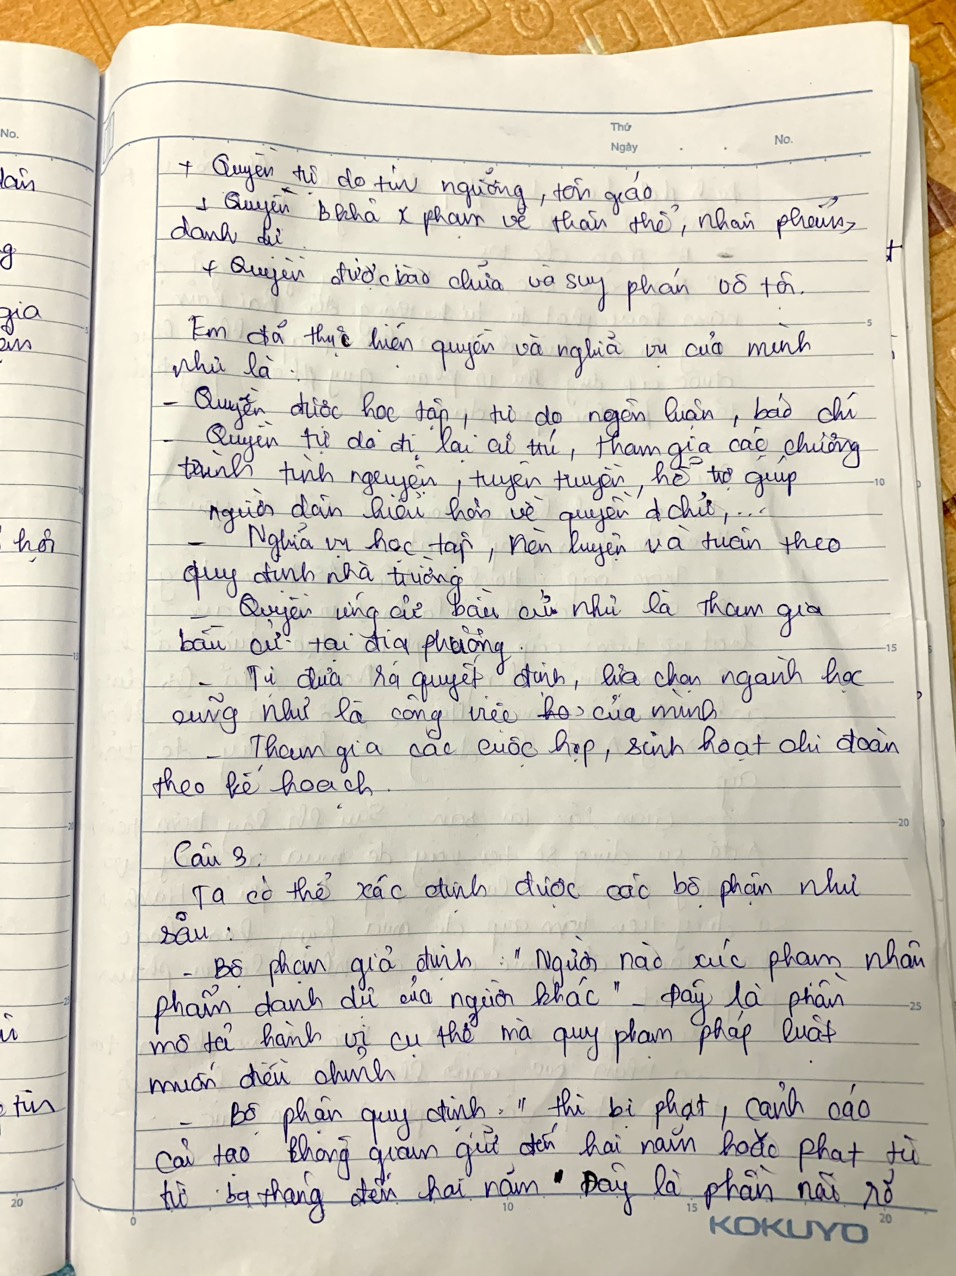 Thứ
Ngày
No.
No.
+ Quyền tự do tín ngưỡng, tôn giáo
+ Quyền bkhả x phạm về thân thể, nhân phẩm,
danh dự
+ Quyền được bào chữa và suy phán vô tội.
Em đã thực hiện quyền và nghĩa vụ của mình
như là:
- Quyền được học tập, tự do ngôn luận, báo chí
- Quyền tự do đi lại cư trú, tham gia các chương
trình tình nguyện, tuyên truyền, hỗ trợ giúp
người dân hiểu hơn về quyền d chủ,...
- Nghĩa vụ học tập, rèn luyện và tuân theo
quy định nhà trường
- Quyền ứng cử bầu cử như là tham gia
bầu cử tại địa phương.
- Tự đưa ra quyết định, lựa chọn ngành học
cũng như là công việc của mình
- Tham gia các cuộc họp, sinh hoạt chi đoàn
theo kế hoạch.
Câu 3:
Ta có thể xác định được các bộ phận như
sau:
- Bộ phận giả định: "Người nào xúc phạm nhân
phẩm danh dự của người khác" - Đây là phần
mô tả hành vi cụ thể mà quy phạm pháp luật
muốn điều chỉnh
- Bộ phận quy định: "thì bị phạt, cảnh cáo
cải tạo không giam giữ đến hai năm hoặc phạt tù
từ ba tháng đến hai năm" Đây là phần nói rõ
gia
hội
tin
5
10
15
20
25
20
0
10
15
20
KOKUYO